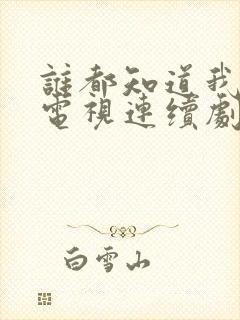 誰都知道我
電視連續劇
白雪山